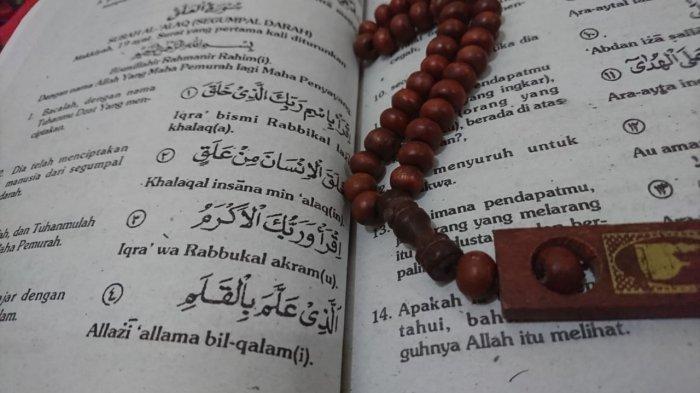 SURAH AL-'ALAQ (SEGUMPAL DARAH)
Makkiyah, 19 ayat. Surat yang pertama kali diturunkan
Bismillahir Rahmanir Rahim(i).
Dengan nama Allah Yang Maha Pemurah lagi Maha Penyayang
1. Bacalah, dengan nama
Tuhanmu
ciptakan.
① اِقْرَأْ بِاسْمِ رَبِّكَ الَّذِيْ خَلَقَ
Iqra' bismi Rabbikal
khalaq(a).
Dia telah menciptakan
manusia dari segumpal
darah.
② خَلَقَ الْاِنْسَانَ مِنْ عَلَقٍ
Khalaqal insāna min 'alaq(in)
dan Tuhanmulah
Maha Pemurah.
③ اِقْرَأْ وَرَبُّكَ الْاَكْرَمُ
Iqra' wa Rabbukal akram(u).
dengan
④ الَّذِيْ عَلَّمَ بِالْقَلَمِ
Allażī 'allama bil-qalam(i).
dia
10.
pendapatmu
ingkar),
(orang yang
berada di atas
menyuruh untuk
13.
pendapatmu,
orang yang melarang
itu
14. Apakah
tahui, bah
guhnya Allah itu melihat.
Ara-aytal
'Abdan iżā
⑪
الْهُدٰىٓ
Ara-ayta in
⑫
Au ama
⑬
Ara-ayta